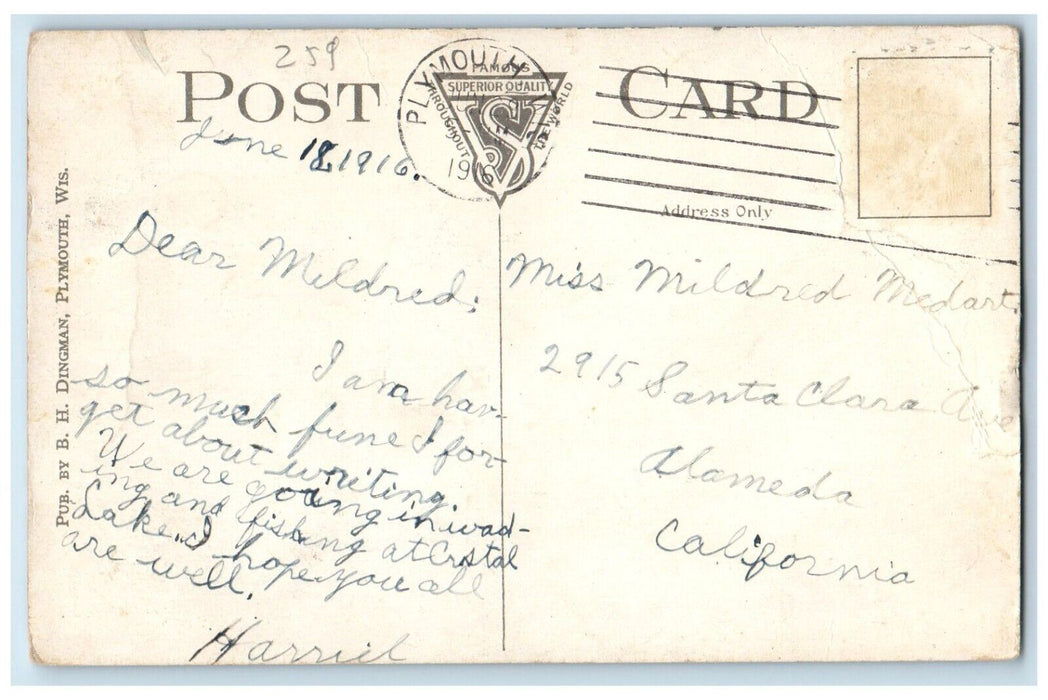 259
POST CARD
PLYMOUTH
1916
FAMOUS
SUPERIOR QUALITY
THROUGHOUT THE WORLD
June 18, 1916.
Address Only
PUB. BY B. H. DINGMAN, PLYMOUTH, WIS.
Dear Mildred;
I am hav-
so much fune I for-
get about writing.
We are going in wad-
ing and fishing at Crstal
Lake. I hope you all
are well.
Harriel
Miss Mildred Medart
2915 Santa Clara Ave
Alameda
California